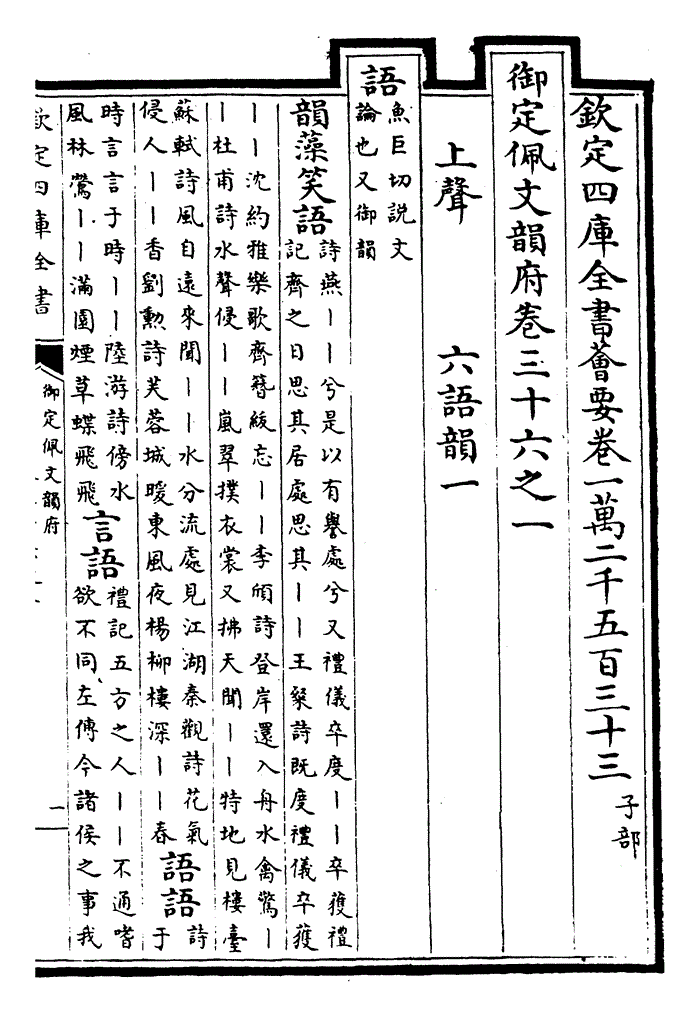 欽定四庫全書薈要卷一萬二千五百三十三
子部
御定佩文韻府卷三十六之一
上聲　六語韻一
語
魚巨切說文
論也又御韻
韻藻笑語
詩燕丨丨兮是以有譽處兮又禮儀卒度丨丨卒獲禮
記齊之日思其居處思其丨丨王粲詩既度禮儀卒獲
丨丨沈約雅樂歌齊簪綏忘丨丨李頎詩登岸還入舟水禽驚丨
丨杜甫詩水聲侵丨丨嵐翠撲衣裳又拂天聞丨丨特地見樓臺
蘇軾詩風自遠來聞丨丨水分流處見江湖秦觀詩花氣
侵人丨丨香劉勲詩芙蓉城暖東風夜楊柳樓深丨丨春
語語
詩
于
時言言于時丨丨陸游詩傍水
風林鶯丨丨滿園煙草蝶飛飛
言語
禮記五方之人丨丨不通嗜
欲不同左傳今諸侯之事我
欽定四庫全書
御定佩文韻府
一